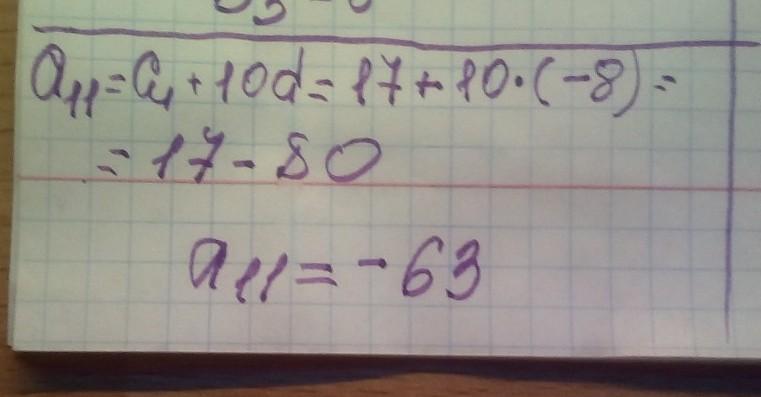 a₁₁ = a₁ + 10d = 17 + 10·(-8) =
= 17 - 80
a₁₁ = -63